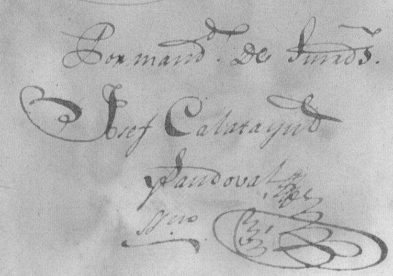 Por mand.º De Su md.
Josef Calatayud
y Sandoval